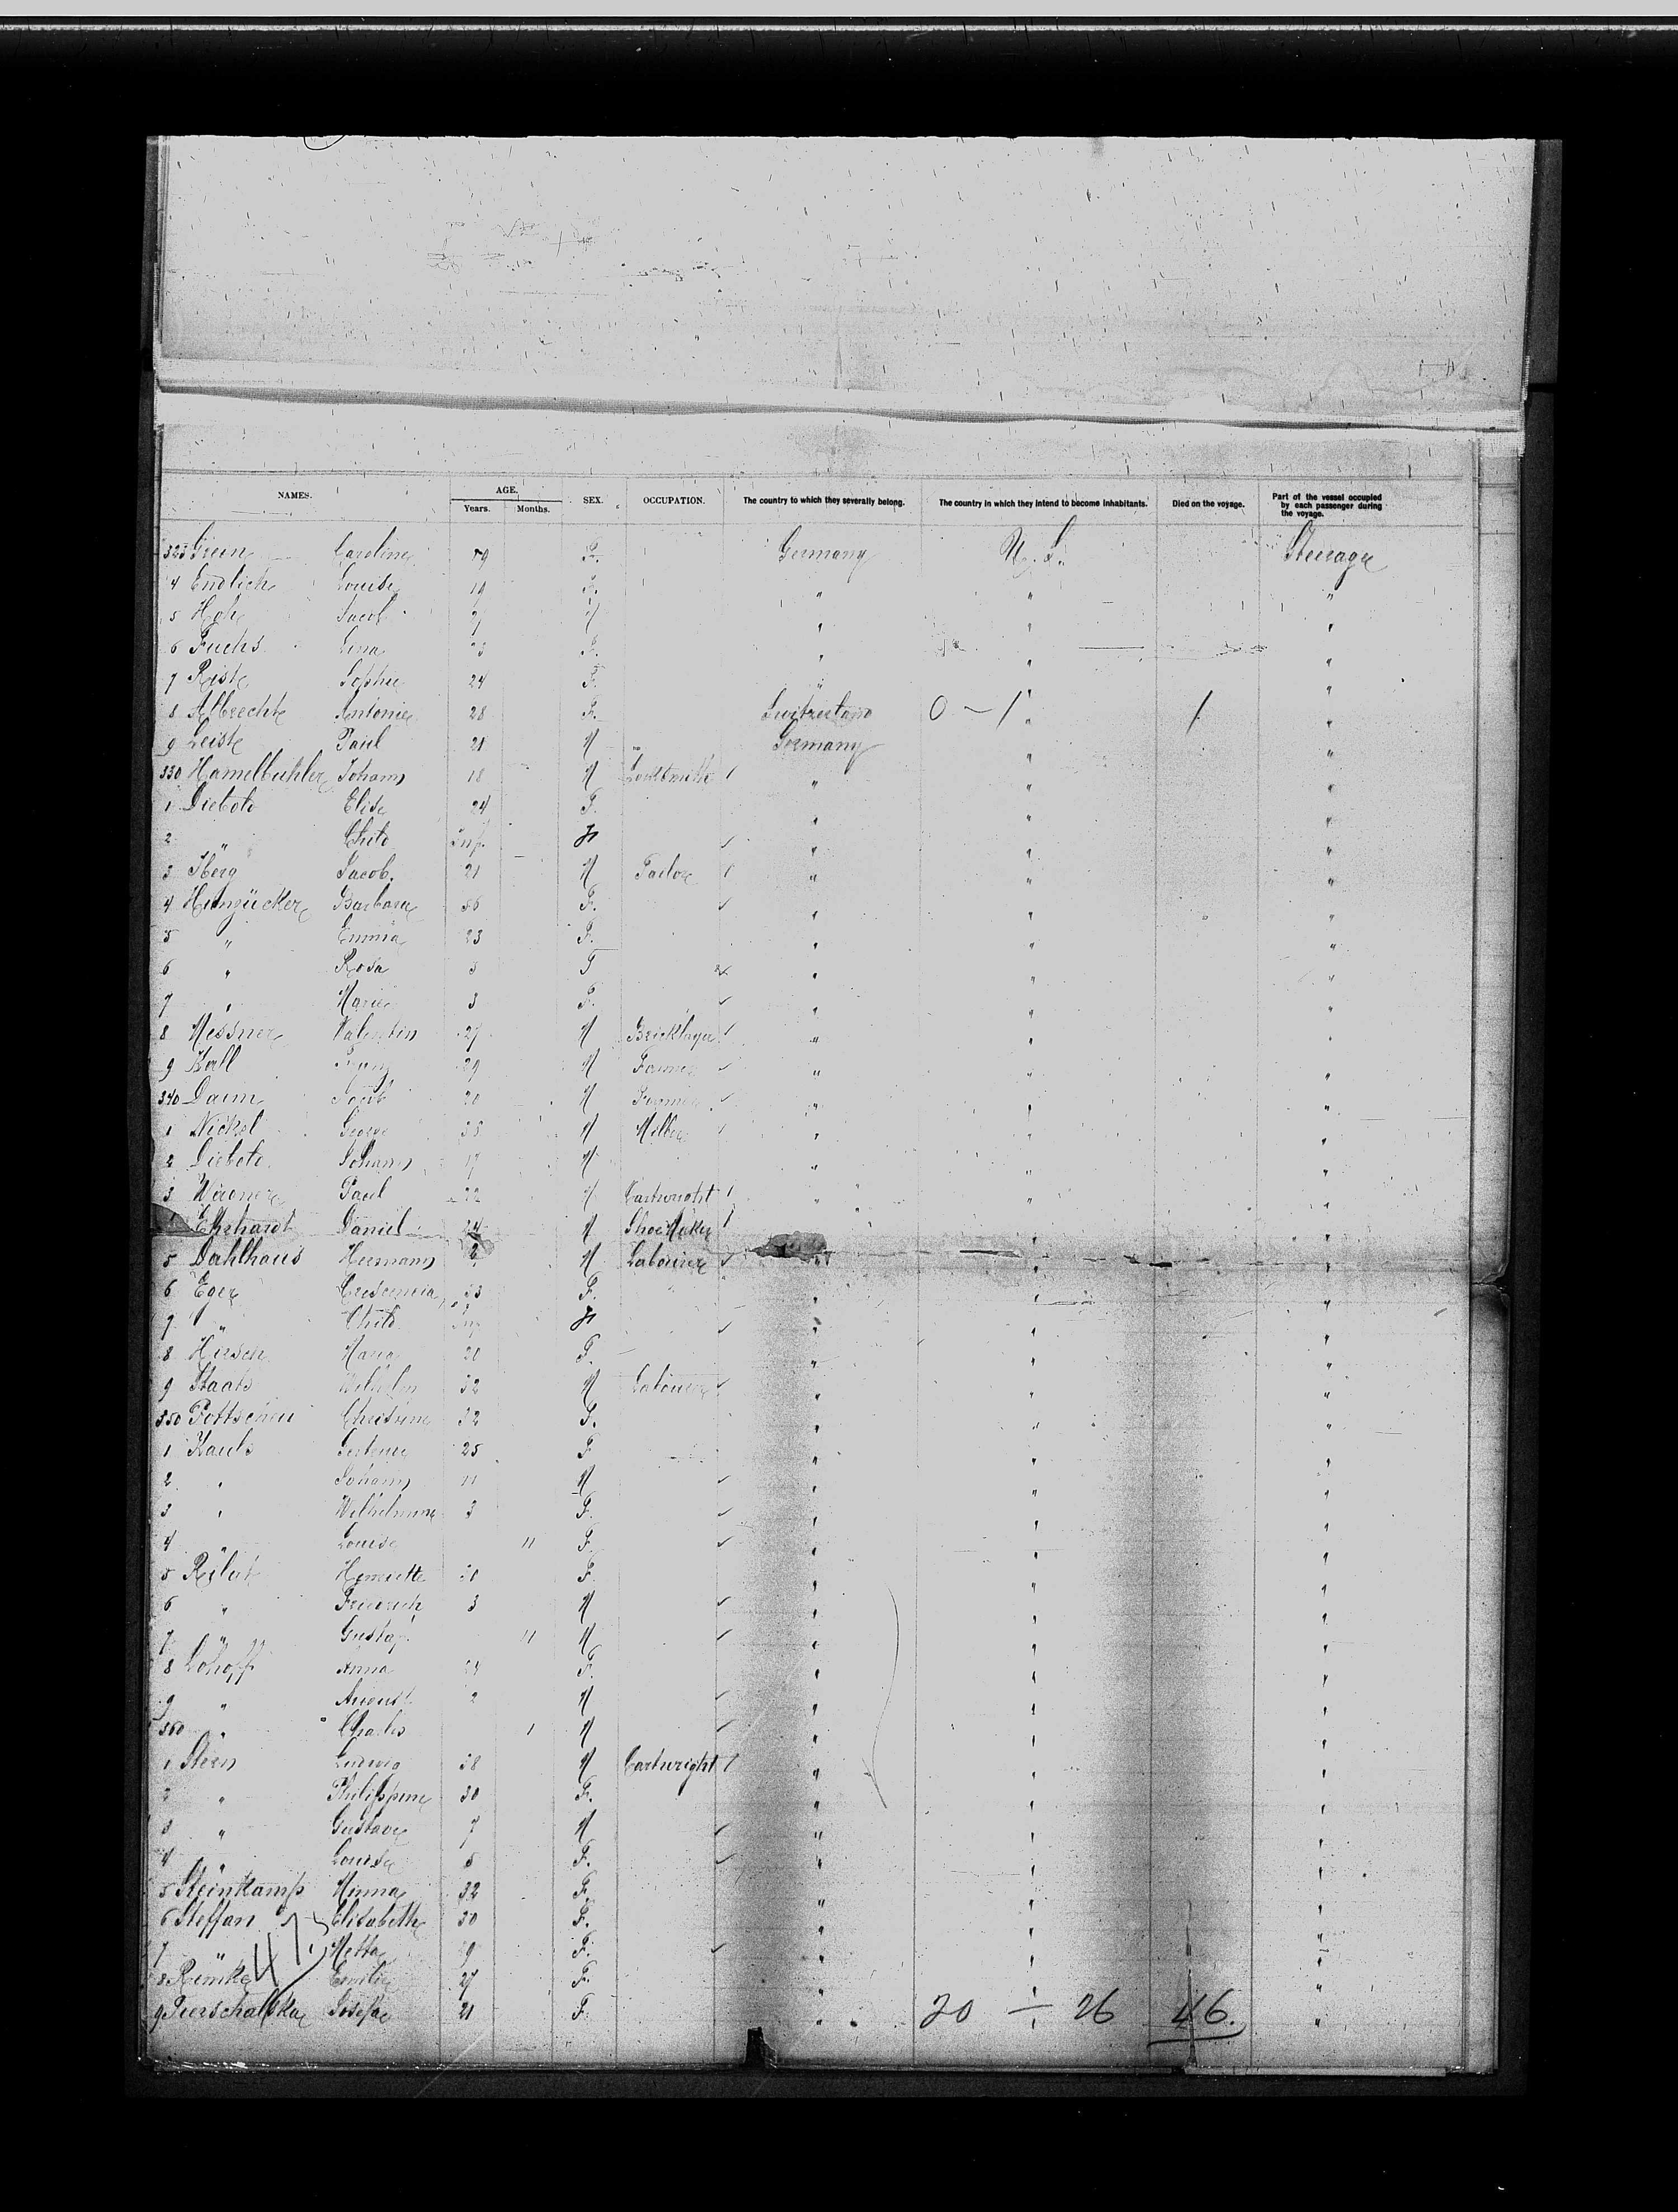 NAMES. AGE. SEX. OCCUPATION. The country to which they severally belong. The country in which they intend to become inhabitants. Died on the voyage. Part of the vessel occupied by each passenger during the voyage.
Years. Months.
323 Green Caroline 59 F. Germany U.S. Steerage
4 Endlich Louise 19 F. " " "
5 Hoh Jacob " " "
6 Fuchs Lina 23 F. " " "
7 Riste Sophie 24 F. " " "
8 Albrecht Antonie 28 F. Switzerland 0 - 1 " 1 "
9 Leist Paul 21 M Germany " "
330 Hamelbuhler Johann 18 M Locksmith / " " "
1 Diebold Elise 24 F. " " "
2 " Child Inf. " " "
3 Iberg Jacob. 21 M Tailor / " " "
4 Barbara 56 F. " " "
5 " Emma 23 F. " " "
6 " Rosa 5 F " " "
7 " Marie 3 F. " " "
8 Messner Valentin 27 M Bricklayer / " " "
9 Kall 29 M Farmer " " "
340 Daum Jacob 20 M Farmer " " "
1 Nickel George 38 M Miller " " "
2 Diebold Johann 17 M " " "
3 Wagner Paul 22 M Cartwright / " " "
4 Ehrhardt Daniel 24 M Shoe Maker / " "
5 Dahlhaus Hermann M Labourer " " "
6 Eger Crescencia 23 F. " " "
7 " Child Inf " " "
8 Hirsch Maria 20 F. " " "
9 Staats Wilhelm 32 M Labourer " " "
350 Christine 32 F. " " "
1 Kauls 25 F " " "
2 " Johann 11 M " " "
3 " Wilhelmine 3 F. " " "
4 " Louise 11 F " " "
5 Henriette 30 F " " "
6 " Friedrich 3 M " " "
7 " Gustaf. 11 M " " "
8 Lohoff Anna 24 F. " " "
9 " August 2 M " " "
360 " Charles 1 M " " "
1 Stern Ludwig 38 M Cartwright / " " "
2 " Philippine 30 F. " " "
3 " Gustave 7 M " " "
4 " Louise 5 F. " " "
5 Steinkamp Minna 32 F " " "
6 Steffan Elisabeth 30 F. " " "
7 " Metta 9 F. " " "
8 Reinke Emilie 27 F. " " "
9 Pierschalska Josefa 21 F. " " "
47
20 - 26 46.